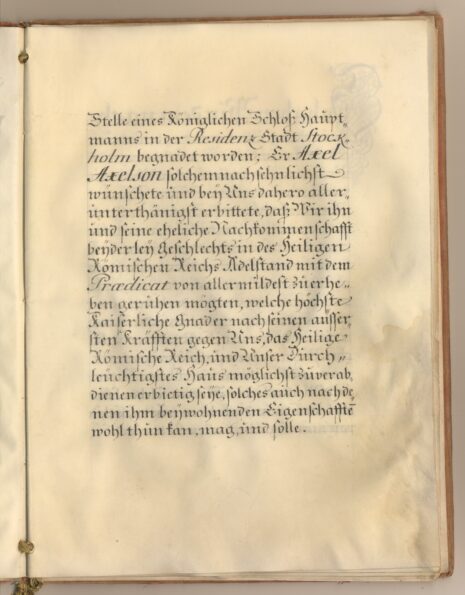 Stelle eines Königlichen Schloß Haupt
manns in der Residenz Stadt Stock-
holm begnadet worden; Er Axel
Axelson solchemnach sehnlichst
wünschete und bey Uns dahero aller„
unterthänigst erbittete, daß Wir ihn
und seine eheliche Nachkommenschafft
beyderley Geschlechts in des Heiligen
Römischen Reichs Adelstand mit dem
Prædicat von allermildest zu erhe„
ben geruhen mögten, welche höchste
Kaiserliche Gnad er nach seinen äusser„
sten Kräfften gegen Uns, das Heilige
Römische Reich, und Unser Durch„
leuchtigstes Haus möglichst zu verab„
dienen erbietig seÿe, solches auch nach de„
nen ihm beywohnenden Eigenschaffte̅
wohl thun kan, mag, und solle.